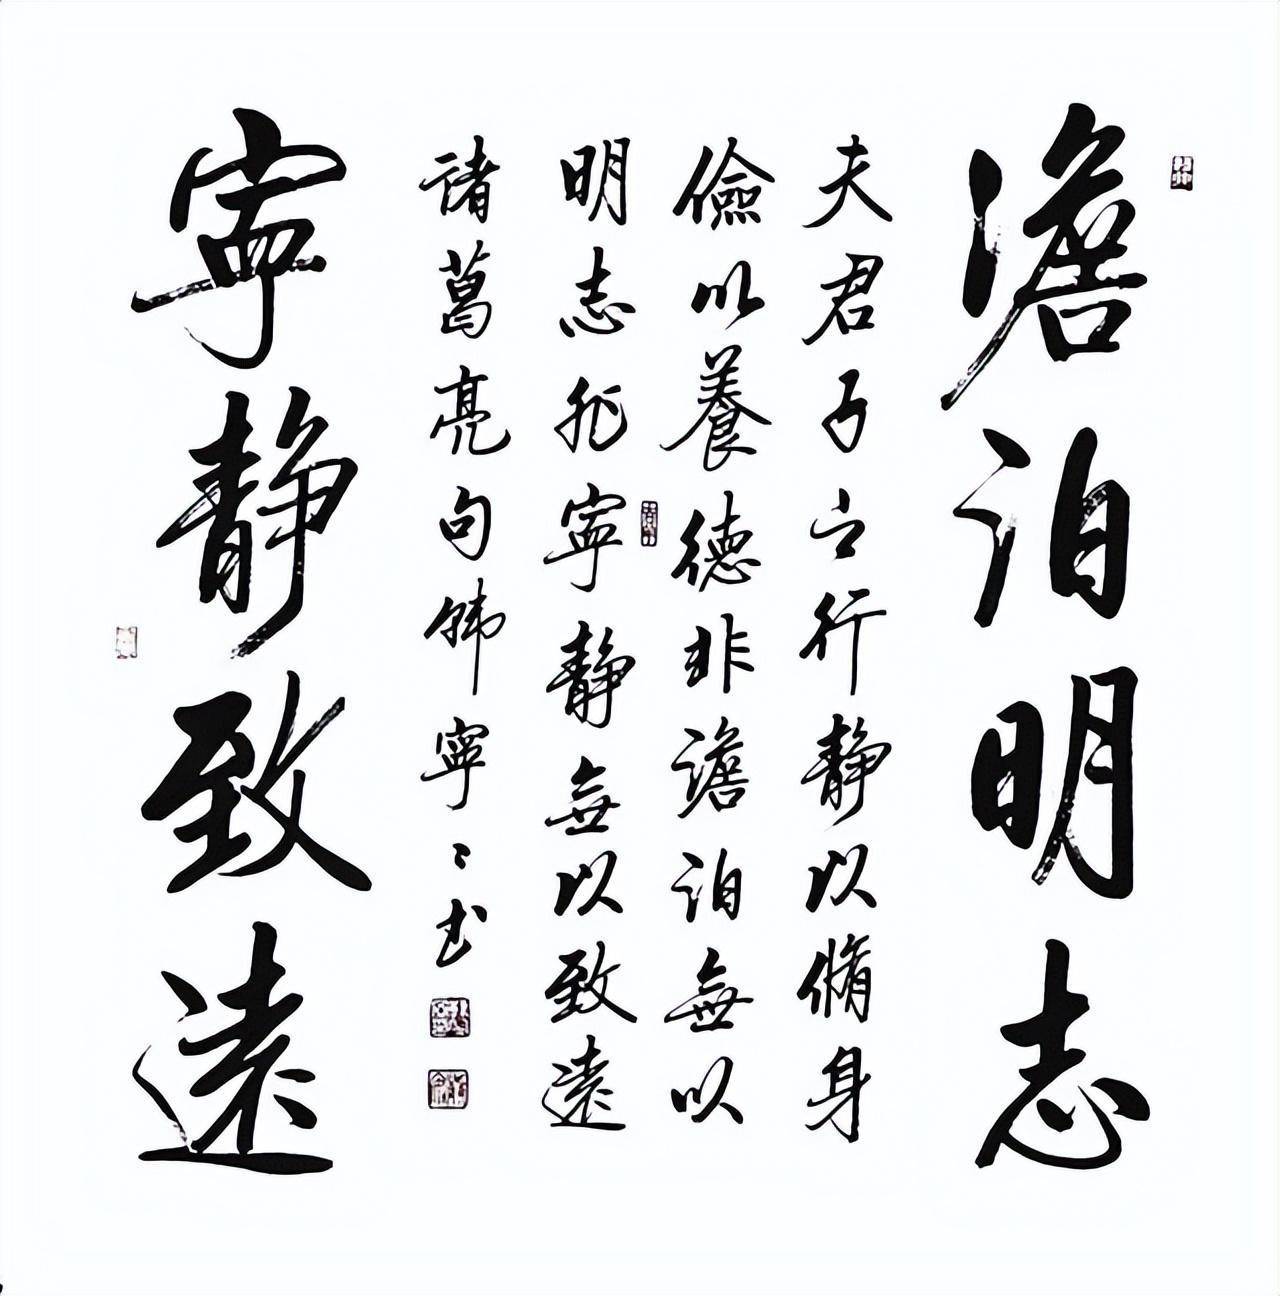 澹泊明志
夫君子之行静以脩身
儉以養德非澹泊無以
明志非寧静無以致遠
諸葛亮句韩寧〻书
寧静致遠